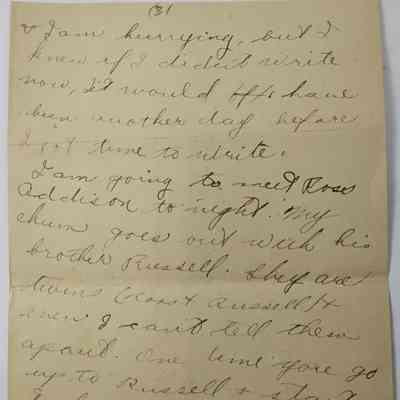 (3)
& I am hurrying, but I
knew if I didn't write
now, it would have
been another day before
I got time to write.
I am going to meet Ross
Addison to-night. My
chum goes out with his
brother Russell. They are
twins (Ross & Russell) &
even I can't tell them
apart. One time Yore go
up to Russell &